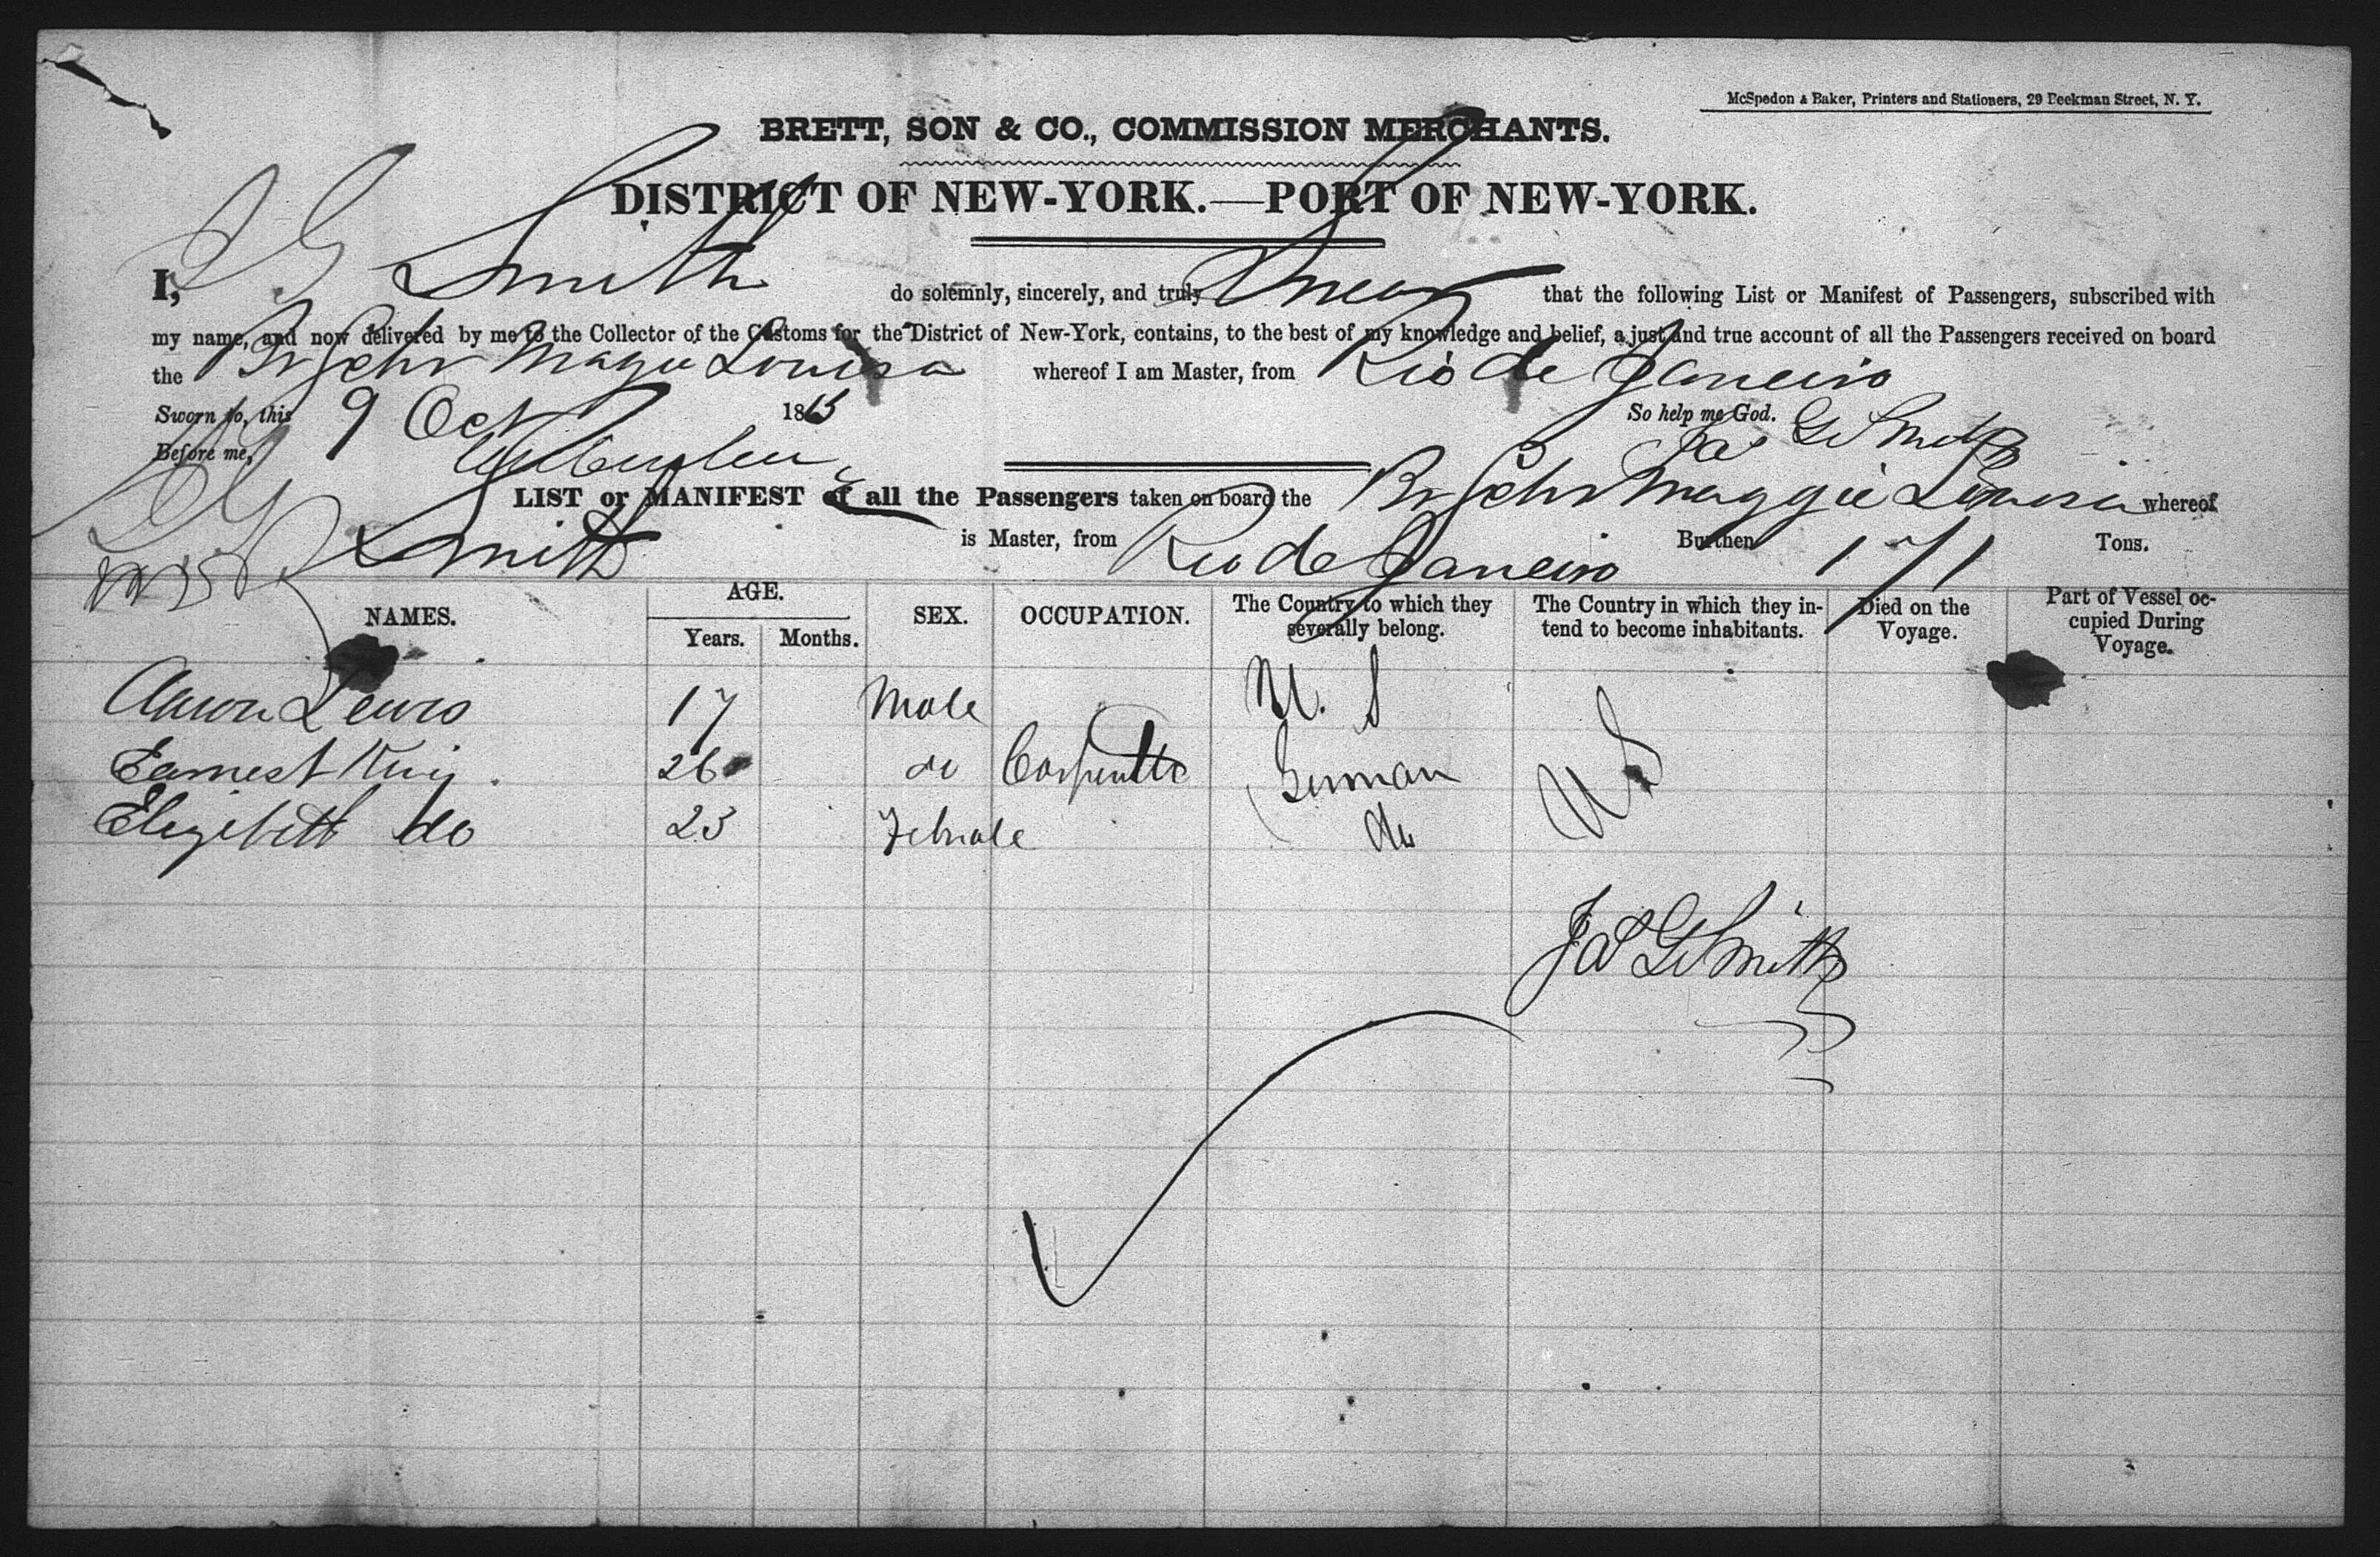 McSpedon & Baker, Printers and Stationers, 29 Beekman Street, N. Y.
BRETT, SON & CO., COMMISSION MERCHANTS.
DISTRICT OF NEW-YORK.—PORT OF NEW-YORK.
I, J G Smith do solemnly, sincerely, and truly Swear that the following List or Manifest of Passengers, subscribed with
my name, and now delivered by me to the Collector of the Customs for the District of New-York, contains, to the best of my knowledge and belief, a just and true account of all the Passengers received on board
the Br Schr Maggie Louisa whereof I am Master, from Rio de Janeiro
Sworn to, this 9 Oct 18 So help me God. Jas G Smith
Before me,
LIST or MANIFEST of all the Passengers taken on board the Br Schr Maggie Louisa whereof
J G Smith is Master, from Rio de Janeiro Burthen 171 Tons.
NAMES. AGE. Years. Months. SEX. OCCUPATION. The Country to which they severally belong. The Country in which they intend to become inhabitants. Died on the Voyage. Part of Vessel occupied During Voyage.
Aaron Lewis 17 Male U. S
Earnest King 26 do Carpenter German U S
Elizibett do 23 Female do
Jas G Smith